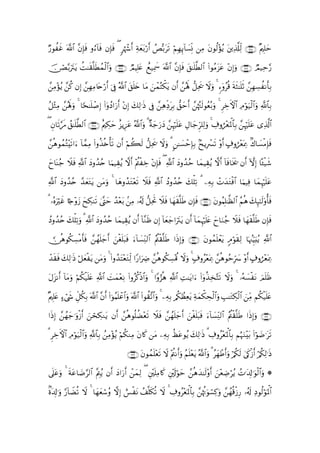 حَلِيمٌ ۝٢٢٥ لِّلَّذِينَ يُؤْلُونَ مِن نِّسَآئِهِمْ تَرَبُّصُ أَرْبَعَةِ أَشْهُرٍ ۖ فَإِن فَآءُو فَإِنَّ ٱللَّهَ غَفُورٌ
رَّحِيمٌ ۝٢٢٦ وَإِنْ عَزَمُوا۟ ٱلطَّلَـٰقَ فَإِنَّ ٱللَّهَ سَمِيعٌ عَلِيمٌ ۝٢٢٧ وَٱلْمُطَلَّقَـٰتُ يَتَرَبَّصْنَ
بِأَنفُسِهِنَّ ثَلَـٰثَةَ قُرُوٓءٍ ۚ وَلَا يَحِلُّ لَهُنَّ أَن يَكْتُمْنَ مَا خَلَقَ ٱللَّهُ فِىٓ أَرْحَامِهِنَّ إِن كُنَّ يُؤْمِنَّ
بِٱللَّهِ وَٱلْيَوْمِ ٱلْـَٔاخِرِ ۚ وَبُعُولَتُهُنَّ أَحَقُّ بِرَدِّهِنَّ فِى ذَٰلِكَ إِنْ أَرَادُوٓا۟ إِصْلَـٰحًا ۚ وَلَهُنَّ مِثْلُ
ٱلَّذِى عَلَيْهِنَّ بِٱلْمَعْرُوفِ ۚ وَلِلرِّجَالِ عَلَيْهِنَّ دَرَجَةٌ ۗ وَٱللَّهُ عَزِيزٌ حَكِيمٌ ۝٢٢٨ ٱلطَّلَـٰقُ مَرَّتَانِ ۖ
فَإِمْسَاكٌۢ بِمَعْرُوفٍ أَوْ تَسْرِيحٌۢ بِإِحْسَـٰنٍ ۗ وَلَا يَحِلُّ لَكُمْ أَن تَأْخُذُوا۟ مِمَّآ ءَاتَيْتُمُوهُنَّ
شَيْـًٔا إِلَّآ أَن يَخَافَآ أَلَّا يُقِيمَا حُدُودَ ٱللَّهِ ۖ فَإِنْ خِفْتُمْ أَلَّا يُقِيمَا حُدُودَ ٱللَّهِ فَلَا جُنَاحَ
عَلَيْهِمَا فِيمَا ٱفْتَدَتْ بِهِۦ ۗ تِلْكَ حُدُودُ ٱللَّهِ فَلَا تَعْتَدُوهَا ۚ وَمَن يَتَعَدَّ حُدُودَ ٱللَّهِ
فَأُو۟لَـٰٓئِكَ هُمُ ٱلظَّـٰلِمُونَ ۝٢٢٩ فَإِن طَلَّقَهَا فَلَا تَحِلُّ لَهُۥ مِنۢ بَعْدُ حَتَّىٰ تَنكِحَ زَوْجًا غَيْرَهُۥ ۗ
فَإِن طَلَّقَهَا فَلَا جُنَاحَ عَلَيْهِمَآ أَن يَتَرَاجَعَآ إِن ظَنَّآ أَن يُقِيمَا حُدُودَ ٱللَّهِ ۗ وَتِلْكَ حُدُودُ
ٱللَّهِ يُبَيِّنُهَا لِقَوْمٍ يَعْلَمُونَ ۝٢٣٠ وَإِذَا طَلَّقْتُمُ ٱلنِّسَآءَ فَبَلَغْنَ أَجَلَهُنَّ فَأَمْسِكُوهُنَّ
بِمَعْرُوفٍ أَوْ سَرِّحُوهُنَّ بِمَعْرُوفٍ ۚ وَلَا تُمْسِكُوهُنَّ ضِرَارًا لِّتَعْتَدُوا۟ ۚ وَمَن يَفْعَلْ ذَٰلِكَ فَقَدْ
ظَلَمَ نَفْسَهُۥ ۚ وَلَا تَتَّخِذُوٓا۟ ءَايَـٰتِ ٱللَّهِ هُزُوًا ۚ وَٱذْكُرُوا۟ نِعْمَتَ ٱللَّهِ عَلَيْكُمْ وَمَآ أَنزَلَ
عَلَيْكُم مِّنَ ٱلْكِتَـٰبِ وَٱلْحِكْمَةِ يَعِظُكُم بِهِۦ ۚ وَٱتَّقُوا۟ ٱللَّهَ وَٱعْلَمُوٓا۟ أَنَّ ٱللَّهَ بِكُلِّ شَىْءٍ عَلِيمٌ
۝٢٣١ وَإِذَا طَلَّقْتُمُ ٱلنِّسَآءَ فَبَلَغْنَ أَجَلَهُنَّ فَلَا تَعْضُلُوهُنَّ أَن يَنكِحْنَ أَزْوَٰجَهُنَّ إِذَا
تَرَٰضَوْا۟ بَيْنَهُم بِٱلْمَعْرُوفِ ۗ ذَٰلِكَ يُوعَظُ بِهِۦ مَن كَانَ مِنكُمْ يُؤْمِنُ بِٱللَّهِ وَٱلْيَوْمِ ٱلْـَٔاخِرِ ۗ
ذَٰلِكُمْ أَزْكَىٰ لَكُمْ وَأَطْهَرُ ۗ وَٱللَّهُ يَعْلَمُ وَأَنتُمْ لَا تَعْلَمُونَ ۝٢٣٢
۞ وَٱلْوَٰلِدَٰتُ يُرْضِعْنَ أَوْلَـٰدَهُنَّ حَوْلَيْنِ كَامِلَيْنِ ۖ لِمَنْ أَرَادَ أَن يُتِمَّ ٱلرَّضَاعَةَ ۚ وَعَلَى
ٱلْمَوْلُودِ لَهُۥ رِزْقُهُنَّ وَكِسْوَتُهُنَّ بِٱلْمَعْرُوفِ ۚ لَا تُكَلَّفُ نَفْسٌ إِلَّا وُسْعَهَا ۚ لَا تُضَآرَّ وَٰلِدَةٌۢ